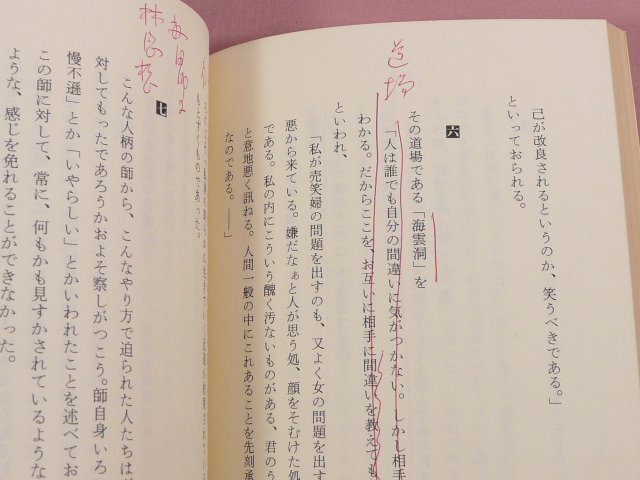 道場
己が改良されるというのか、笑うべきである。」
といっておられる。
六
その道場である「海雲洞」を
「人は誰でも自分の間違いに気がつかない。しかし相手
わかる。だからここを、お互いに相手に間違いを教えても
といわれ、
「私が売笑婦の問題を出すのも、又よく女の問題を出す
悪から来ている。嫌だなぁと人が思う処、顔をそむけた処
である。私の内にこういう醜く汚ないものがある、君のう
と意地悪く訊ねる。人間一般の中にこれあることを先刻承
なのである。――」
七
こんな人柄の師から、こんなやり方で迫られた人たちは
対してもったであろうかおよそ察しがつこう。師自身いろ
慢不遜」とか「いやらしい」とかいわれたことを述べてお
この師に対して、常に、何もかも見すかされているような
ような、感じを免れることができなかった。